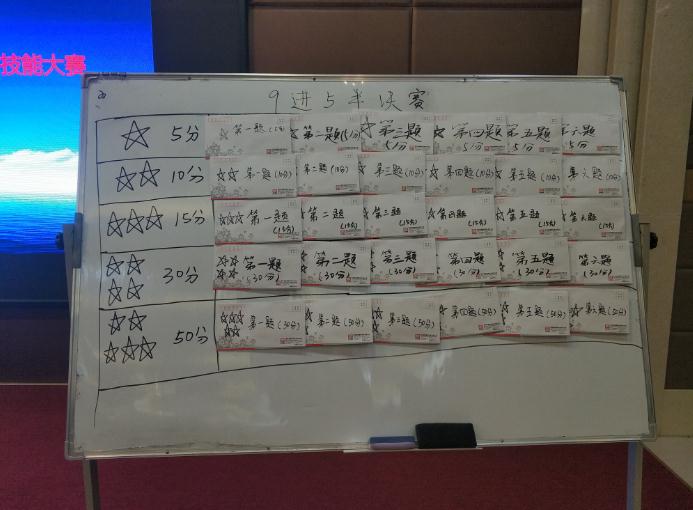 技能大赛
9进5半决赛
5分 第一题(5分) 第二题(5分) 第三题5分 第四题5分 第五题5分 第六题5分
10分 第一题(10分) 第二题(10分) 第三题(10分) 第四题(10分) 第五题(10分) 第六题(10分)
15分 第一题(15分) 第二题(15分) 第三题(15分) 第四题(15分) 第五题(15分) 第六题(15分)
30分 第一题(30分) 第二题(30分) 第三题(30分) 第四题(30分) 第五题(30分) 第六题(30分)
50分 第一题(50分) 第二题(50分) 第三题(50分) 第四题(50分) 第五题(50分) 第六题(50分)